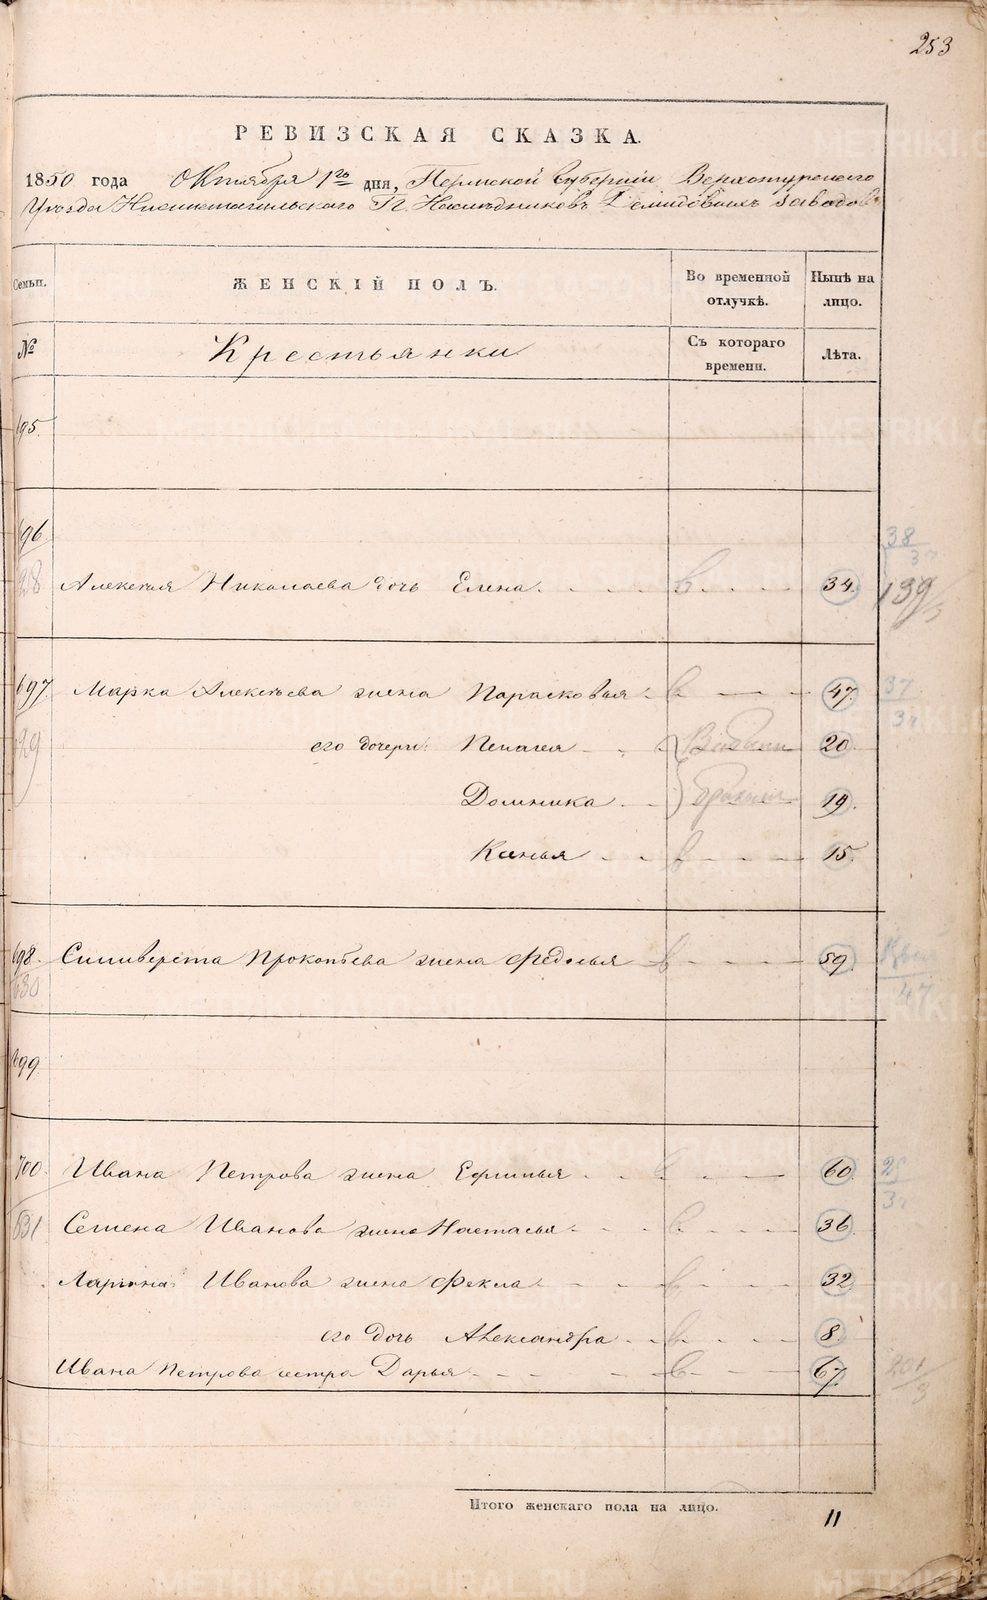 253
РЕВИЗСКАЯ СКАЗКА.
1850 года Октября 1го дня, Пермской Губернии Верхотурского
Уезда Нижнетагильского Г. Наследников Демидовых заводов
Семьи. ЖЕНСКІЙ ПОЛЪ. Во временной отлучкѣ. Нынѣ на лицо.
№ Крестьянки Съ котораго времени. Лѣта.
695.
696
38
37
928 Алексея Николаева дочь Елена. в 34. 139/3
697 Марка Алексеева жена Парасковья в 47 37
929 его дочери: Пелагея 20
Домника 19.
Ксенья в 15.
698. Силиверста Прокопьева жена Федосья в 59.
930 47
699
700. Ивана Петрова жена Ефимья в 60. 25
931 Семена Иванова жена Настасья в 36
Лариона Иванова жена Фекла в 32
его дочь Александра в 8.
Ивана Петрова сестра Дарья в 67 201/3
Итого женскаго пола на лицо. 11
METRIKI.GASO-URAL.RU